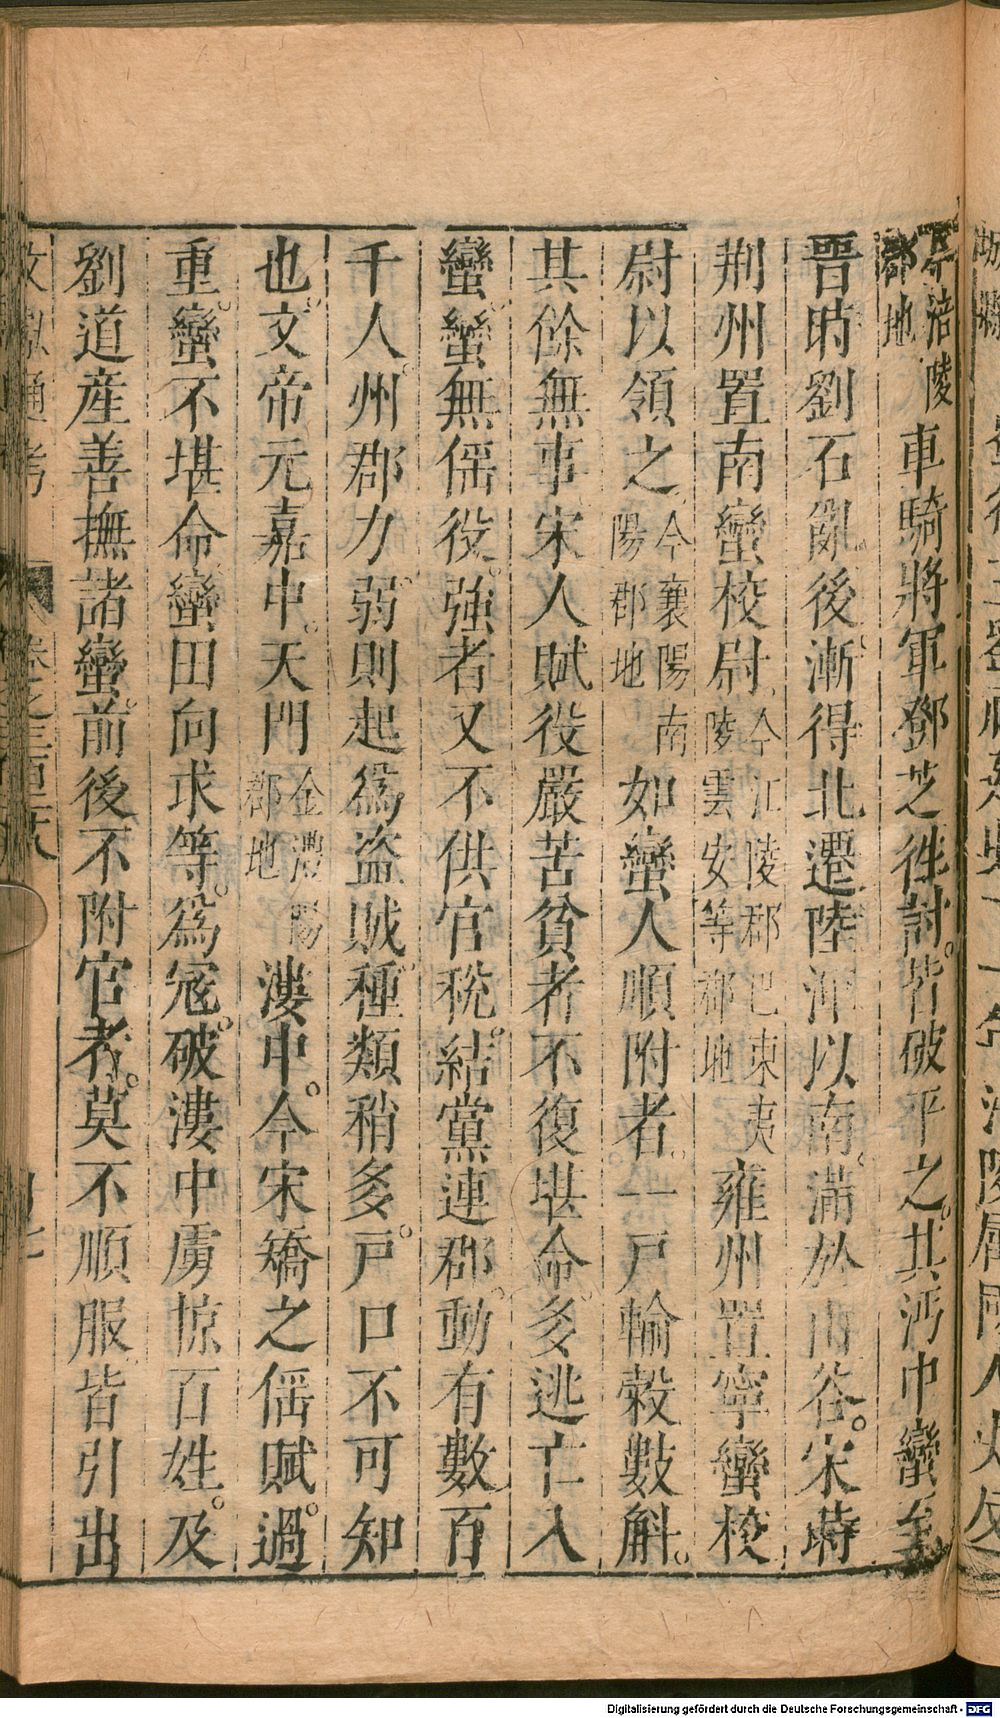 今涪陵郡地車騎將軍鄧芝徃討皆破平之其沔中蠻至
晉時劉石亂後漸得北遷陸渾以南滿於山谷宋時
荆州置南蠻校尉今江陵郡巴東夷陵雲安等郡地雍州置寧蠻校
尉以領之今襄陽南陽郡地如蠻人順附者一戸輸穀數斛
其餘無事宋人賦役嚴苦貧者不復堪命多逃亡入
蠻蠻無徭役強者又不供官稅結黨連郡動有數百
千人州郡力弱則起爲盜賊種類稍多戸口不可知
也文帝元嘉中天門今澧陽郡地漊中令宋矯之徭賦過
重蠻不堪命蠻田向求等爲寇破漊中虜掠百姓及
劉道産善撫諸蠻前後不附官者莫不順服皆引出
文獻通考 卷之三百二十八
Digitalisierung gefördert durch die Deutsche Forschungsgemeinschaft - DFG